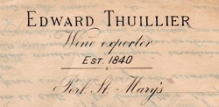 EDWARD THUILLIER
Wine exporter
EST. 1840
Port St. Mary's